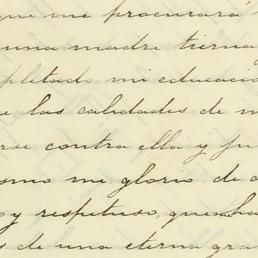 que me procurará
una madre tierna
pletado mi educació
e las calidades de m
rse contra ella y ju
smo me glorio de
oy respetuso, quen ha
s de una eterna gra